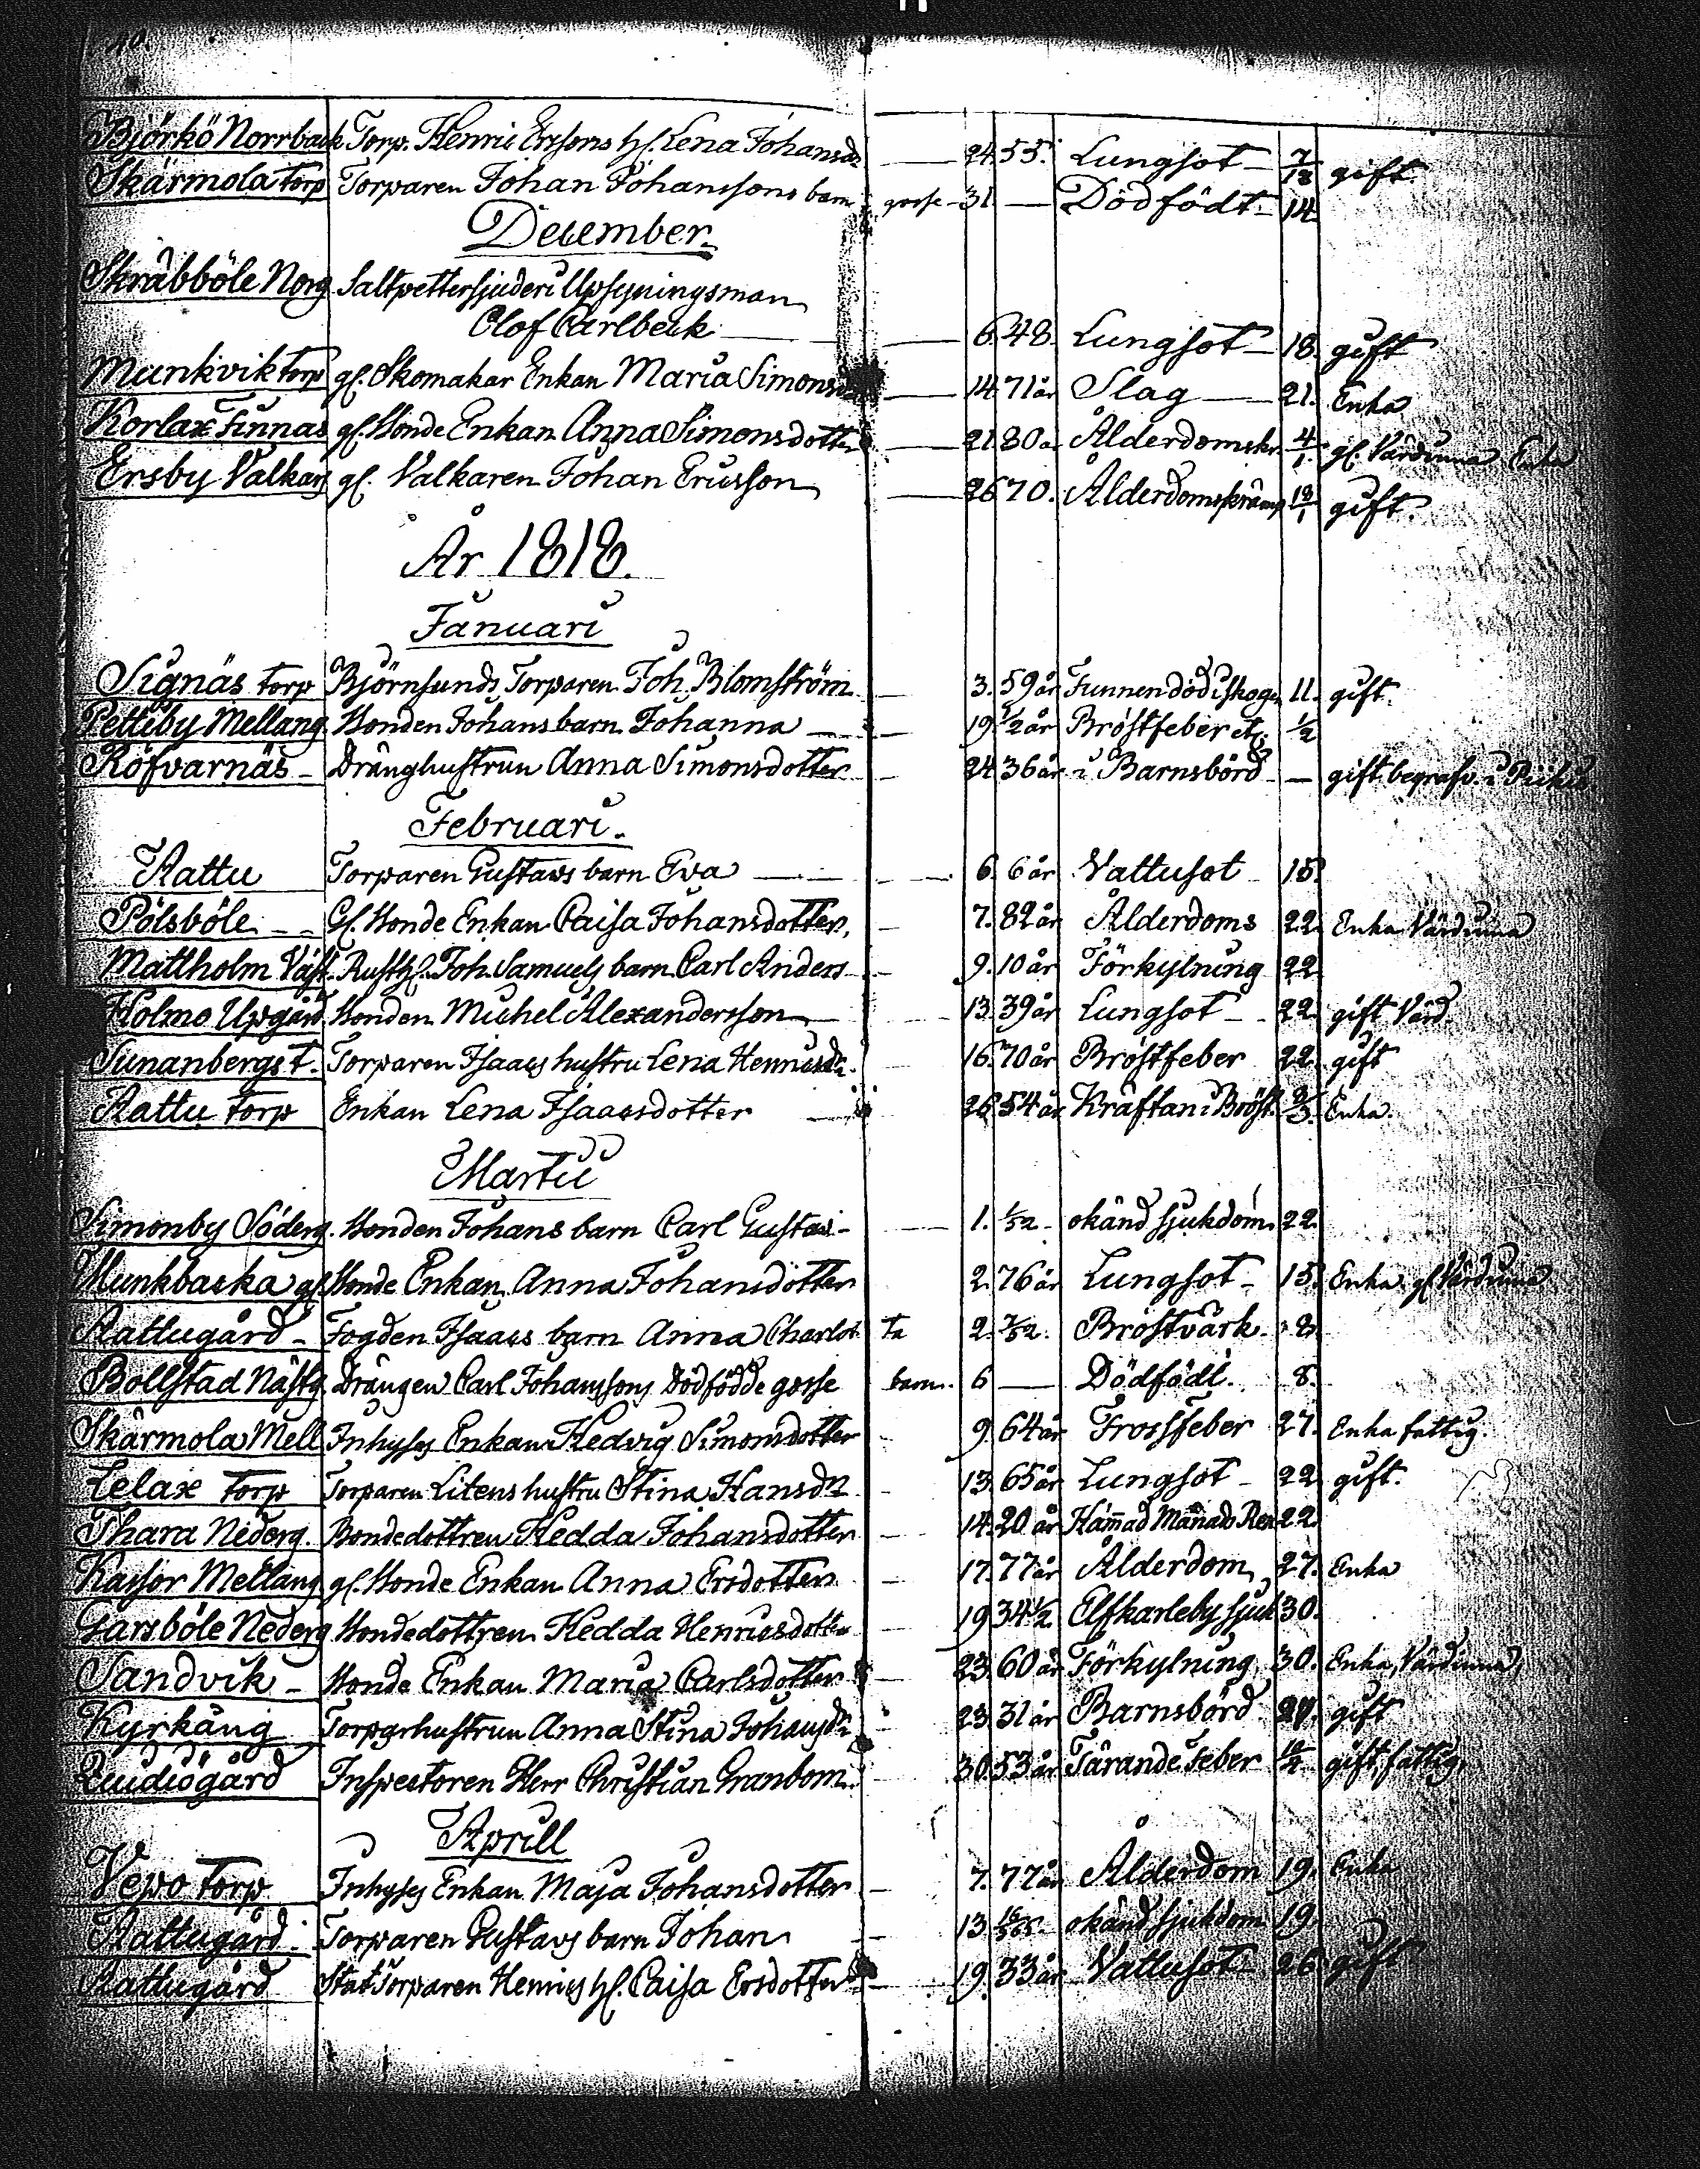 Björkö Norrback Torp. Henric Ersssons h. Lena Johansdr — 24. 55. Lungsot — 7/12 gift.
Skärmola torp Torparen Johan Johanssons barn gosse — 31 — Dödfödt. 14
December.
Skräbböle Norg Saltpettersjuderi Upsyningsman
Olof Carlbeck — 6. 48. Lungsot — 18. gift
Munkvik torp gl. Skomakar Enkan Maria Simonsd — 14. 71 år Slag — 21. Enka
Korlax Finnas gl. Bonde Enkan Anna Simonsdotter — 21 80 år Ålderdomskr. 4/1 gl. Värdinna Enka
Ersby Valkars gl. Valkaren Johan Ericsson — 26 70. Ålderdomskrämp 18/1 gift.
År 1818.
Januari
Signäs torp Björnsunds Torparen Joh. Blomström — 3. 59 år Funnen död i skogen 11. gift.
Petteby Mellang. Bonden Johans barn Johanna — 19. 1/2 år Bröstfeber etc. 1/2
Röfvarnäs — Dränghustrun Anna Simonsdotter — 24 36 år i Barnsbörd — gift begrafv. i Piikis
Februari.
Aattu Torparen Gustavs barn Eva — 6. 6 år Vattusot 15.
Pölsböle — Gl. Bonde Enkan Caisa Johansdotter, — 7. 82 år Ålderdoms 22. Enka Värdinna
Mattholm Väst. Rusth. Joh. Samuels barn Carl Anders — 9. 10 år Förkylning 22
Holmo Uppgård Bonden Michel Alexandersson — 13. 39 år Lungsot — 22. gift Värd.
Sunanbergs t. Torparen Isaacs hustru Lena Henricsdr. — 16. 70 år Bröstfeber 22. gift
Aattu torp Enkan Lena Isaacsdotter — 26 54 år Kräftan i Bröst. 9/3. Enka.
Martii
Simonby Söderg. Bonden Johans barn Carl Gustav — 1. 1/52 okänd sjukdom. 22.
Munkbacka gl. Bonde Enkan Anna Johansdotter 2. 76 år Lungsot — 15. Enka gl. Värdinna
Aattugård — Fogden Isaacs barn Anna Charlot ta 2. 7/52. Bröstvärk. 8.
Bollstad Nästg. Drängen Carl Johanssons dödfödde gosse barn. 6 — Dödfödt. 8.
Skärmola Mell Inhyses Enkan Hedvig Simonsdotter — 9. 64 år Frossfeber 27. Enka fattig.
Lelax torp Torparen Litens hustru Stina Hansdr. — 13. 65 år Lungsot — 22 gift.
Thara Nederg. Bondedottren Hedda Johansdotter — 14. 20 år Hämmad Månads Ren 22
Kassor Mellang gl. Bonde Enkan Anna Ersdotter — 17. 77 år Ålderdom 27. Enka
Larsböle Nederg Bondedottren Hedda Henricsdotter — 19 34 1/2 Elfkarleby sjuk 30.
Sandvik — Bonde Enkan Maria Carlsdotter — 23. 60 år Förkylning 30. Enka, Värdinna,
Kyrkäng Torparhustrun Anna Stina Johansdr. — 23 31 år Barnsbörd 27. gift
Qvidjögård Inspectoren Herr Christian Granbom. — 30. 53 år Tärande feber 12/4 gift, fattig,
Aprill
Vepo torp Inhyses Enkan Maja Johansdotter — 7. 77 år Ålderdom 19. Enka
Aattugård. Torparen Gustavs barn Johan — 13 okänd sjukdom 19.
Aattugård StatTorparen Henrics h. Caisa Ersdotter — 19. 33 år Vattusot — 26. gift